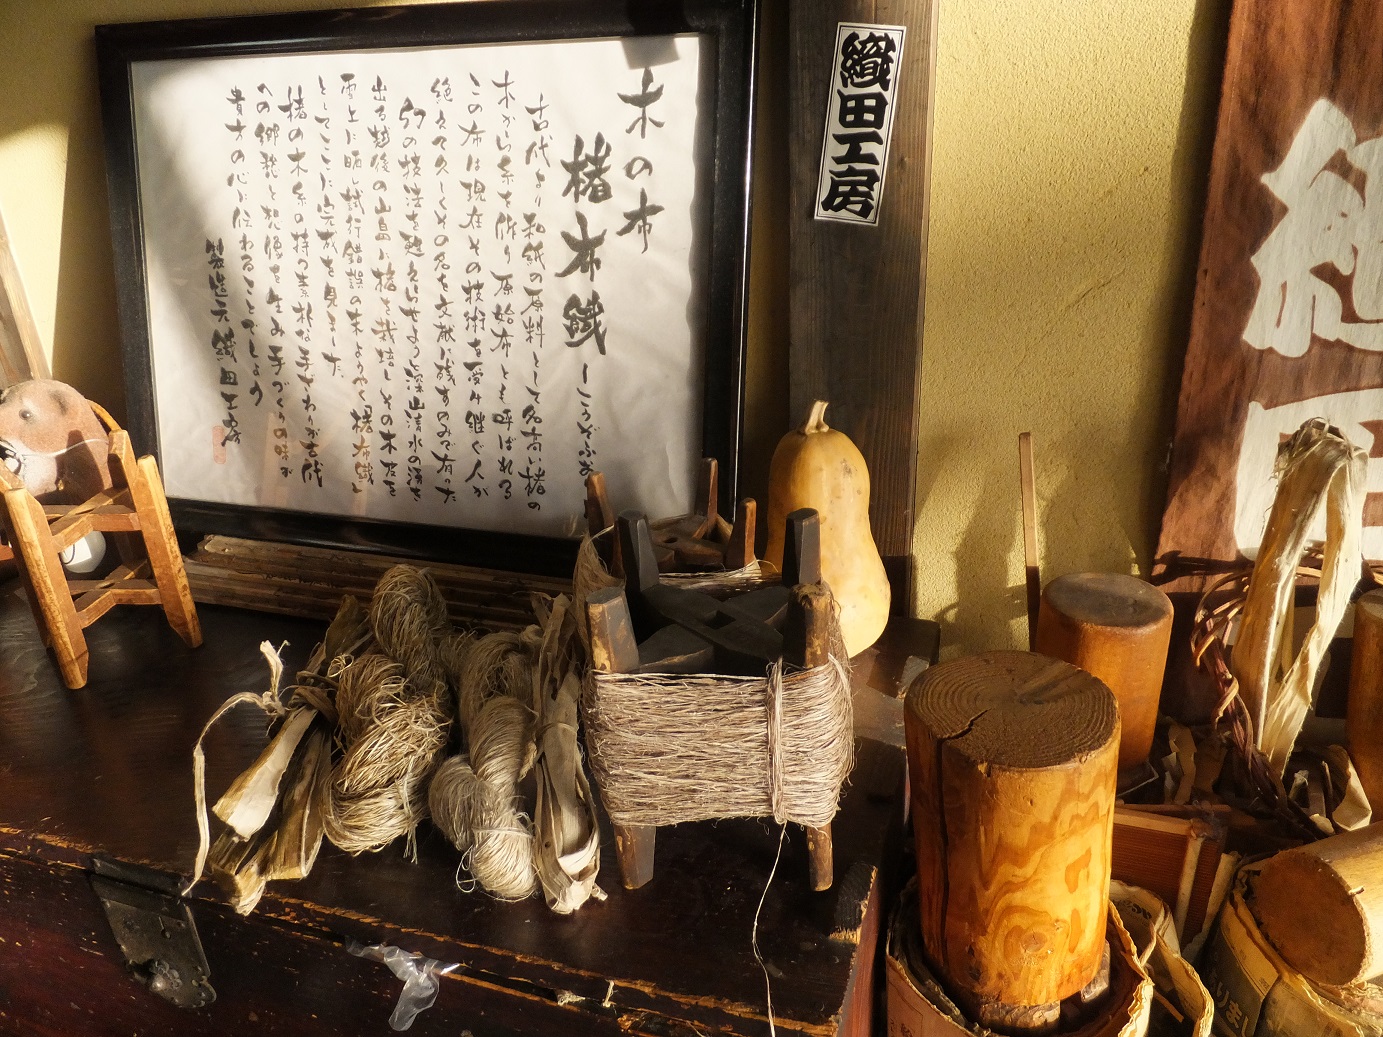 木の布
楮布織
古代より和紙の原料として名高い楮の
木から糸を作り原始布とも呼ばれる
この布は現在その技術を受け継ぐ人が
絶えて久しくその名を文献に残すのみで有った
出る越後の山島に楮を栽培しその木皮を
雪上に晒し試行錯誤の末ようやく楮布織と
としてここに完成を見ました
楮の木糸の持つ素朴な手ざわりが古代
への郷愁と想像を生み手づくりの味が
貴方の心に伝わることでしょう
製造元 織田工房
織田工房